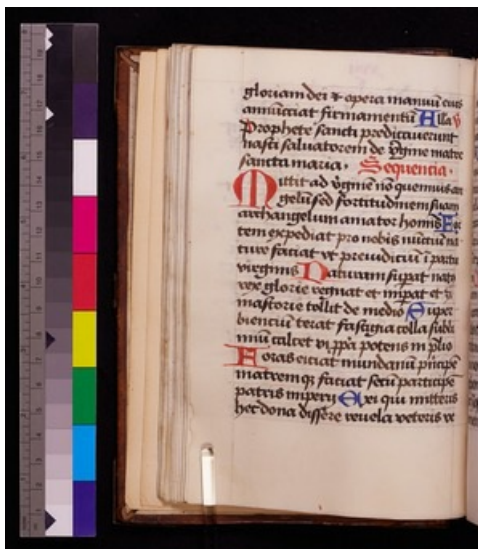 gloriam dei et opera manuū eius
annūciat firmamentū Alla ℣
Prophete sancti predicaverunt
nasci salvatorem de v̄gine matre
sancta maria. Sequencia.
Mittit ad v̄ginē nō quemvis an
gelū sed fortitudinem suam
archangelum amator homīs For
tem expediat pro nobis nūciū na
ture faciat vt preiudiciū ī partu
virginis Naturam sup̄at nat9
rex glorie regnat et īmp̄at et
mastorie tollit de medio Super
bienciū terat fastigia colla subli
miū calcet vi p̄pa potens in p̄lio
Foras eiciat mundanū pīncipē
matremq3 faciat secū participē
patris imperii Exi qui mitteris
hec dona disse͂re revela veteris ve